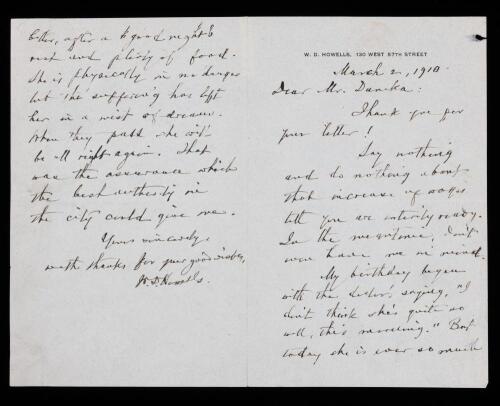 W. D. HOWELLS, 130 WEST 57TH STREET
March 2, 1910.
Dear Mr. Duneka:
Thank you for
your letter!
Say nothing
and do nothing about
that increase of wages
till you are entirely ready.
In the meantime, don't
even have me in mind.
My birthday began
with the sister's saying, "I
don't think she's quite so
well, this morning." But
today she is ever so much
better, after a good night's
rest and plenty of food.
She is physically in no danger
but the suffering has left
her in a mist of dreams.
When they pass she will
be all right again. That
was the assurance which
the best authority in
the city could give me.
Yours sincerely,
with thanks for your good wishes,
W. D. Howells.